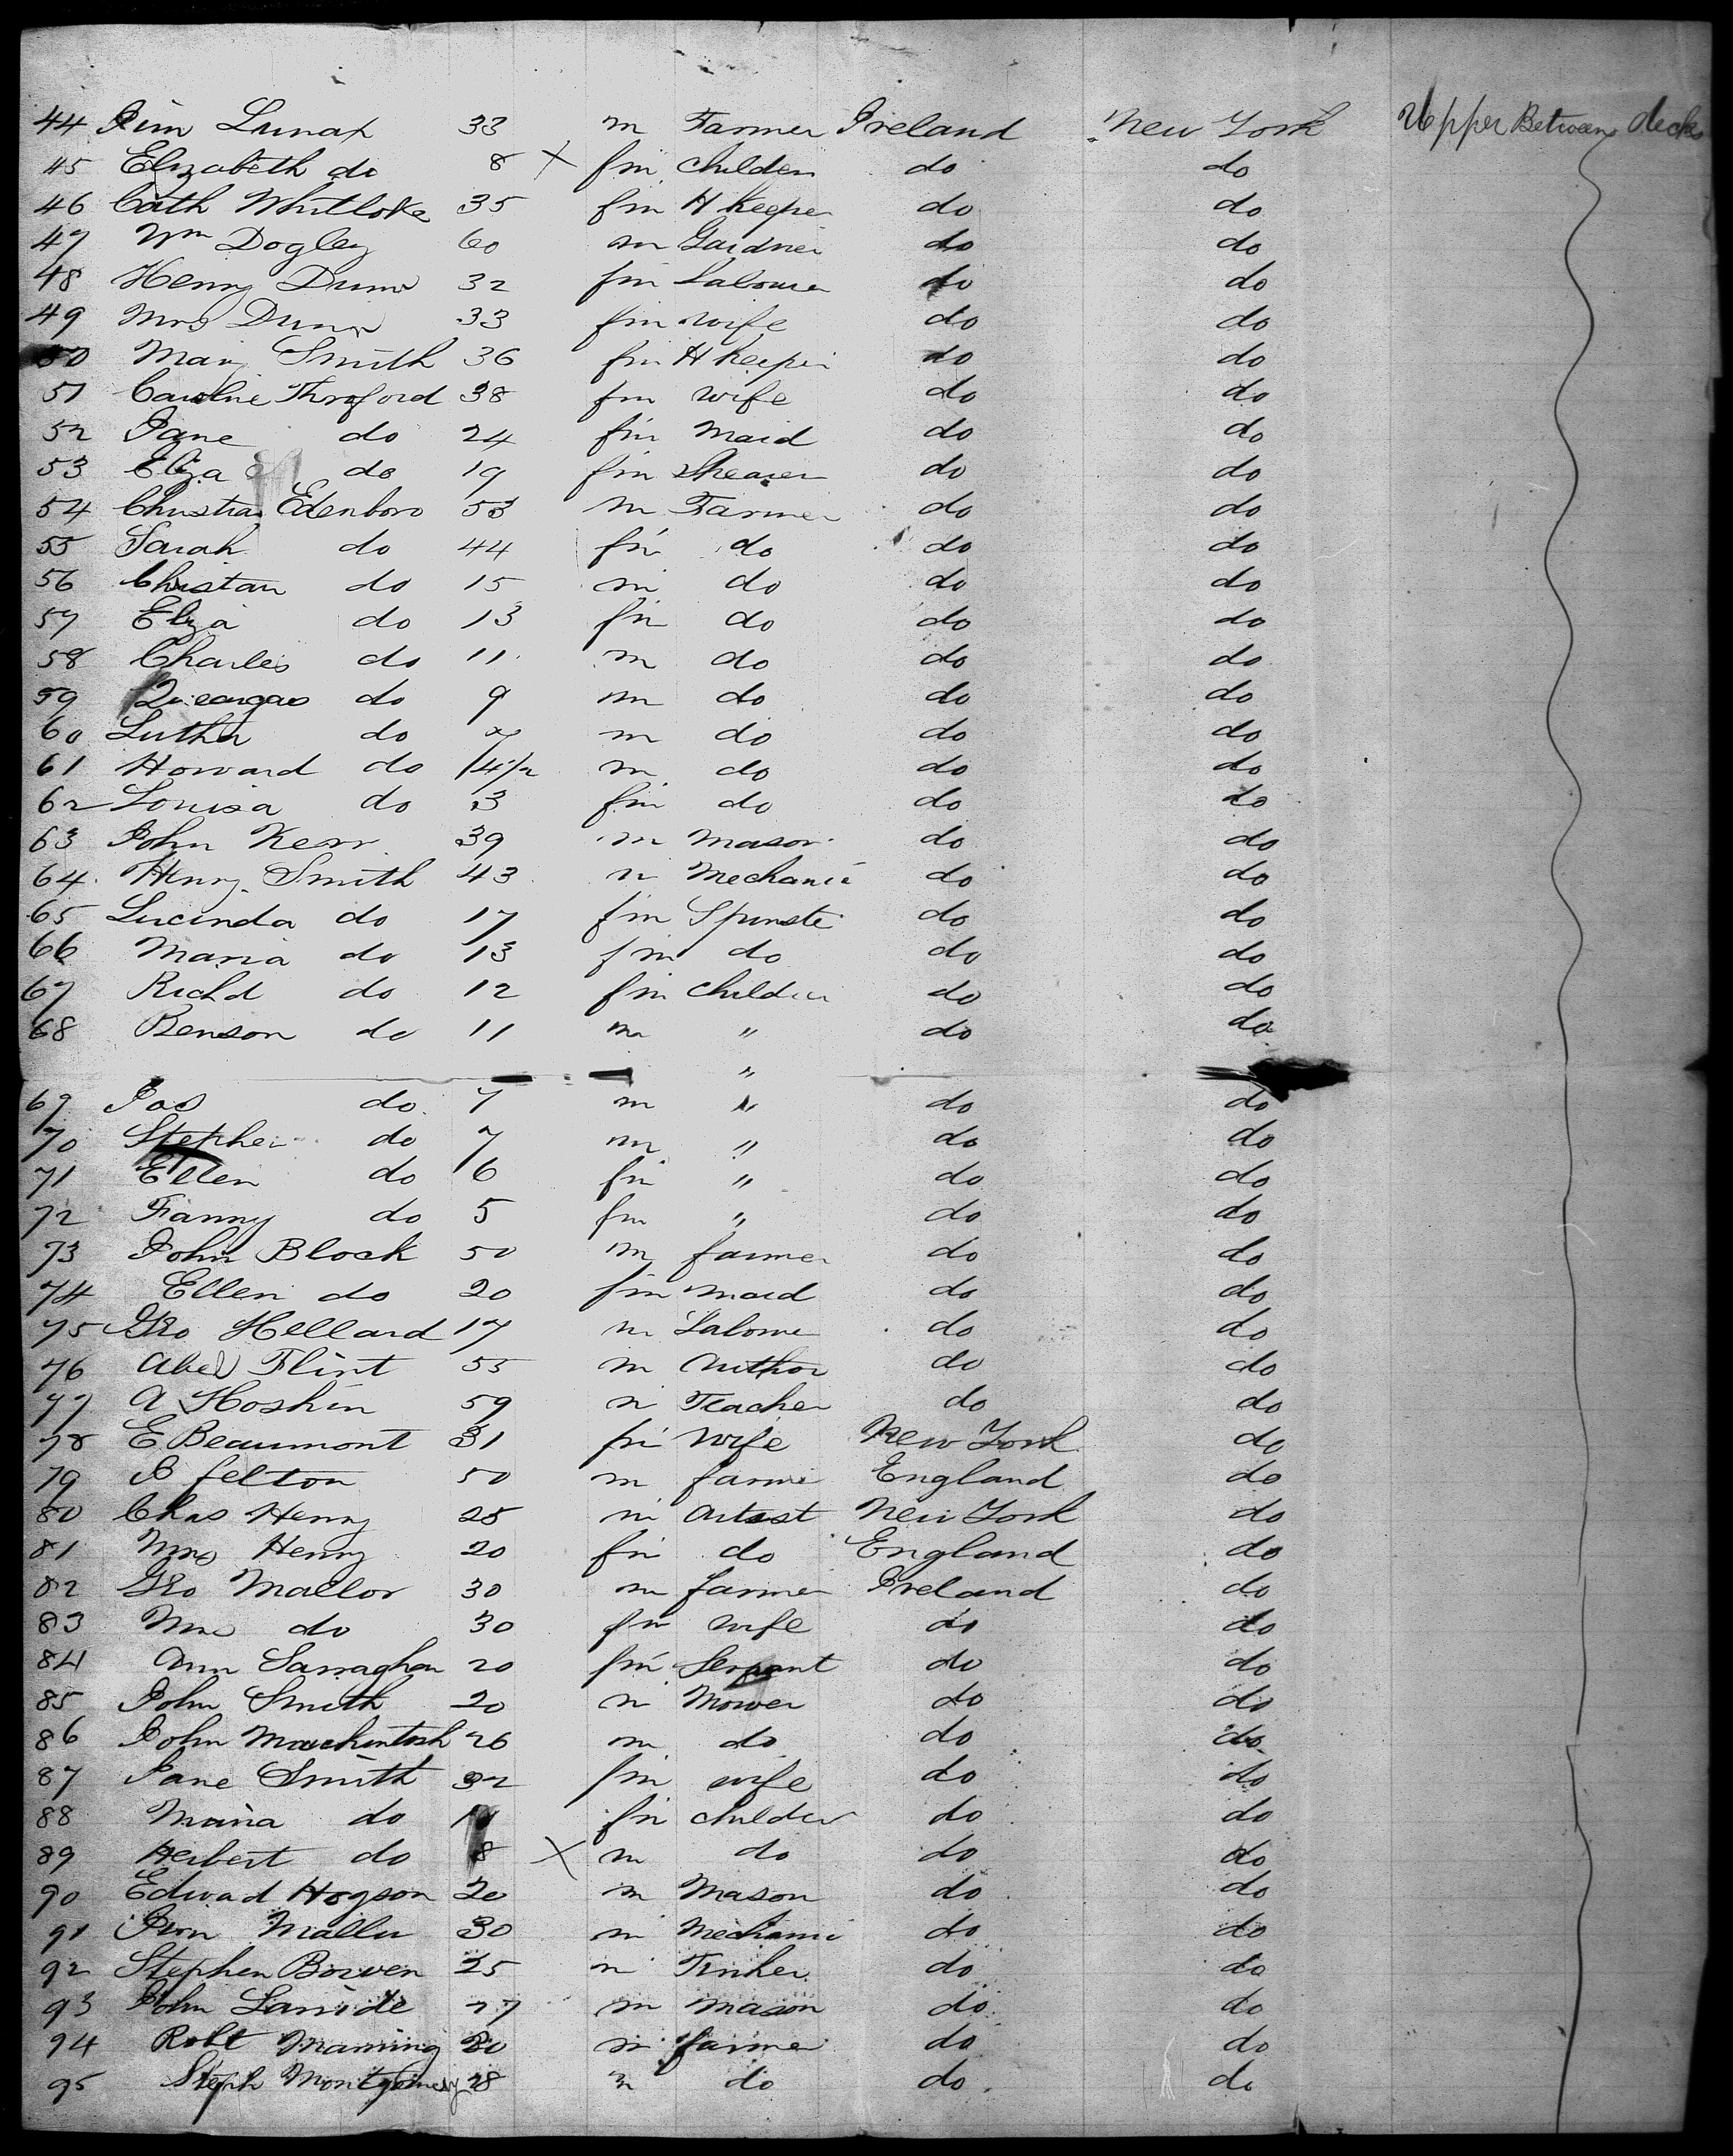 44 Jim Lunax 33 m Farmer Ireland New York Upper Between decks
45 Elizabeth do 8 X fm children do do
46 Cath Whitloke 35 fm H Keeper do do
47 Wm Dogley 60 m Gardner do do
48 Henry Dunn 32 fm Labourer do do
49 Mrs Dunn 33 fm wife do do
50 Mary Smith 36 fm H Keeper do do
51 Caroline Throford 38 fm wife do do
52 Jane do 24 fm Maid do do
53 Eliza do 19 fm Shearer do do
54 Christian Edenboro 53 m Farmer do do
55 Sarah do 44 fm do do do
56 Christian do 15 m do do do
57 Eliza do 13 fm do do do
58 Charles do 11 m do do do
59 do 9 m do do do
60 Luther do 7 m do do do
61 Howard do 4 1/2 m do do do
62 Louisa do 3 fm do do do
63 John Kerr 39 m Mason do do
64 Henry Smith 43 m Mechanic do do
65 Lucinda do 17 fm Spinster do do
66 Maria do 13 fm do do do
67 Richd do 12 fm children do do
68 Benson do 11 m " do do
"
69 Jas do 7 m " do do
70 Stephen do 7 m " do do
71 Ellen do 6 fm " do do
72 Fanny do 5 fm " do do
73 John Block 50 m farmer do do
74 Ellen do 20 fm maid do do
75 Geo Hellard 17 m Labourer do do
76 Abel Flint 55 m Author do do
77 A Hoshin 59 m Teacher do do
78 E Beaumont 31 fm wife New York do
79 J felton 50 m farmer England do
80 Chas Henry 25 m Artist New York do
81 Mrs Henry 20 fm do England do
82 Geo Mallor 30 m farmer Ireland do
83 Mrs do 30 fm wife do do
84 Ann Sarraghan 20 fm Servant do do
85 John Smith 20 m Mower do do
86 John Mackintosh 26 m do do do
87 Jane Smith 32 fm wife do do
88 Maria do fm children do do
89 Herbert do 8 X m do do do
90 Edward Hogson 20 m Mason do do
91 Mallu 30 m Mechanic do do
92 Stephen Bowen 25 m Tinker do do
93 John Larride 27 m mason do do
94 Robt Manning 30 m farmer do do
95 Steph Montgomery 28 m do do do